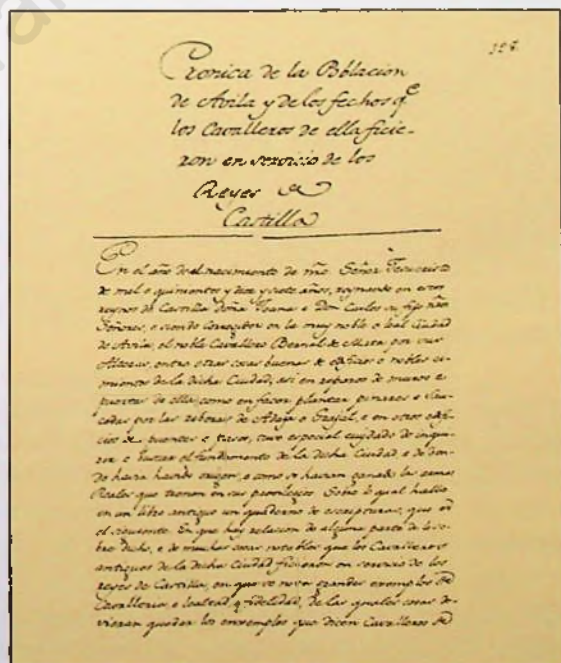 128.
Cronica de la Poblacion
de Avila y de los fechos q.e
los Cavalleros de ella ficie-
ron en servicio de los
Reyes de
Castilla
En el año del nacimiento de nro Señor Jesucristo
de mil e quinientos y diez y siete años, reynando en estos
reynos de Castilla Doña Juana e Don Carlos su fijo nros
Señores, e siendo Corregidor en la muy noble e leal Ciudad
de Avila, el noble Cavallero Bernal de Mata por sus
Altezas, entre otras cosas buenas de edificios e nobles ci-
mientos de la dicha Ciudad, asi en reparos de muros e
puertas de ella, como en facer plantar pinares e Sau-
cedas por las riberas de Adaja e Grajal, e en otros edifi-
cios de puentes e pasos, tuvo especial cuydado de inqui-
rir e buscar el fundamento de la dicha Ciudad, e de don-
de havia havido origen, e como se havian ganado las armas
Reales que tienen en sus previlegios. Sobre lo qual hallo
en un libro antiguo un quaderno de escripturas, que es
el siguiente. En que hay relacion de alguna parte de lo so-
bre dicho, e de muchas cosas notables que los Cavalleros
antiguos de la dicha Ciudad ficieron en servicio de los
reyes de Castilla, en que se nota grandes exemplos de
Cavalleria, e lealtad, y fidelidad, de las quales cosas de-
vieran quedar los enxemplos que dicen Cavalleros de